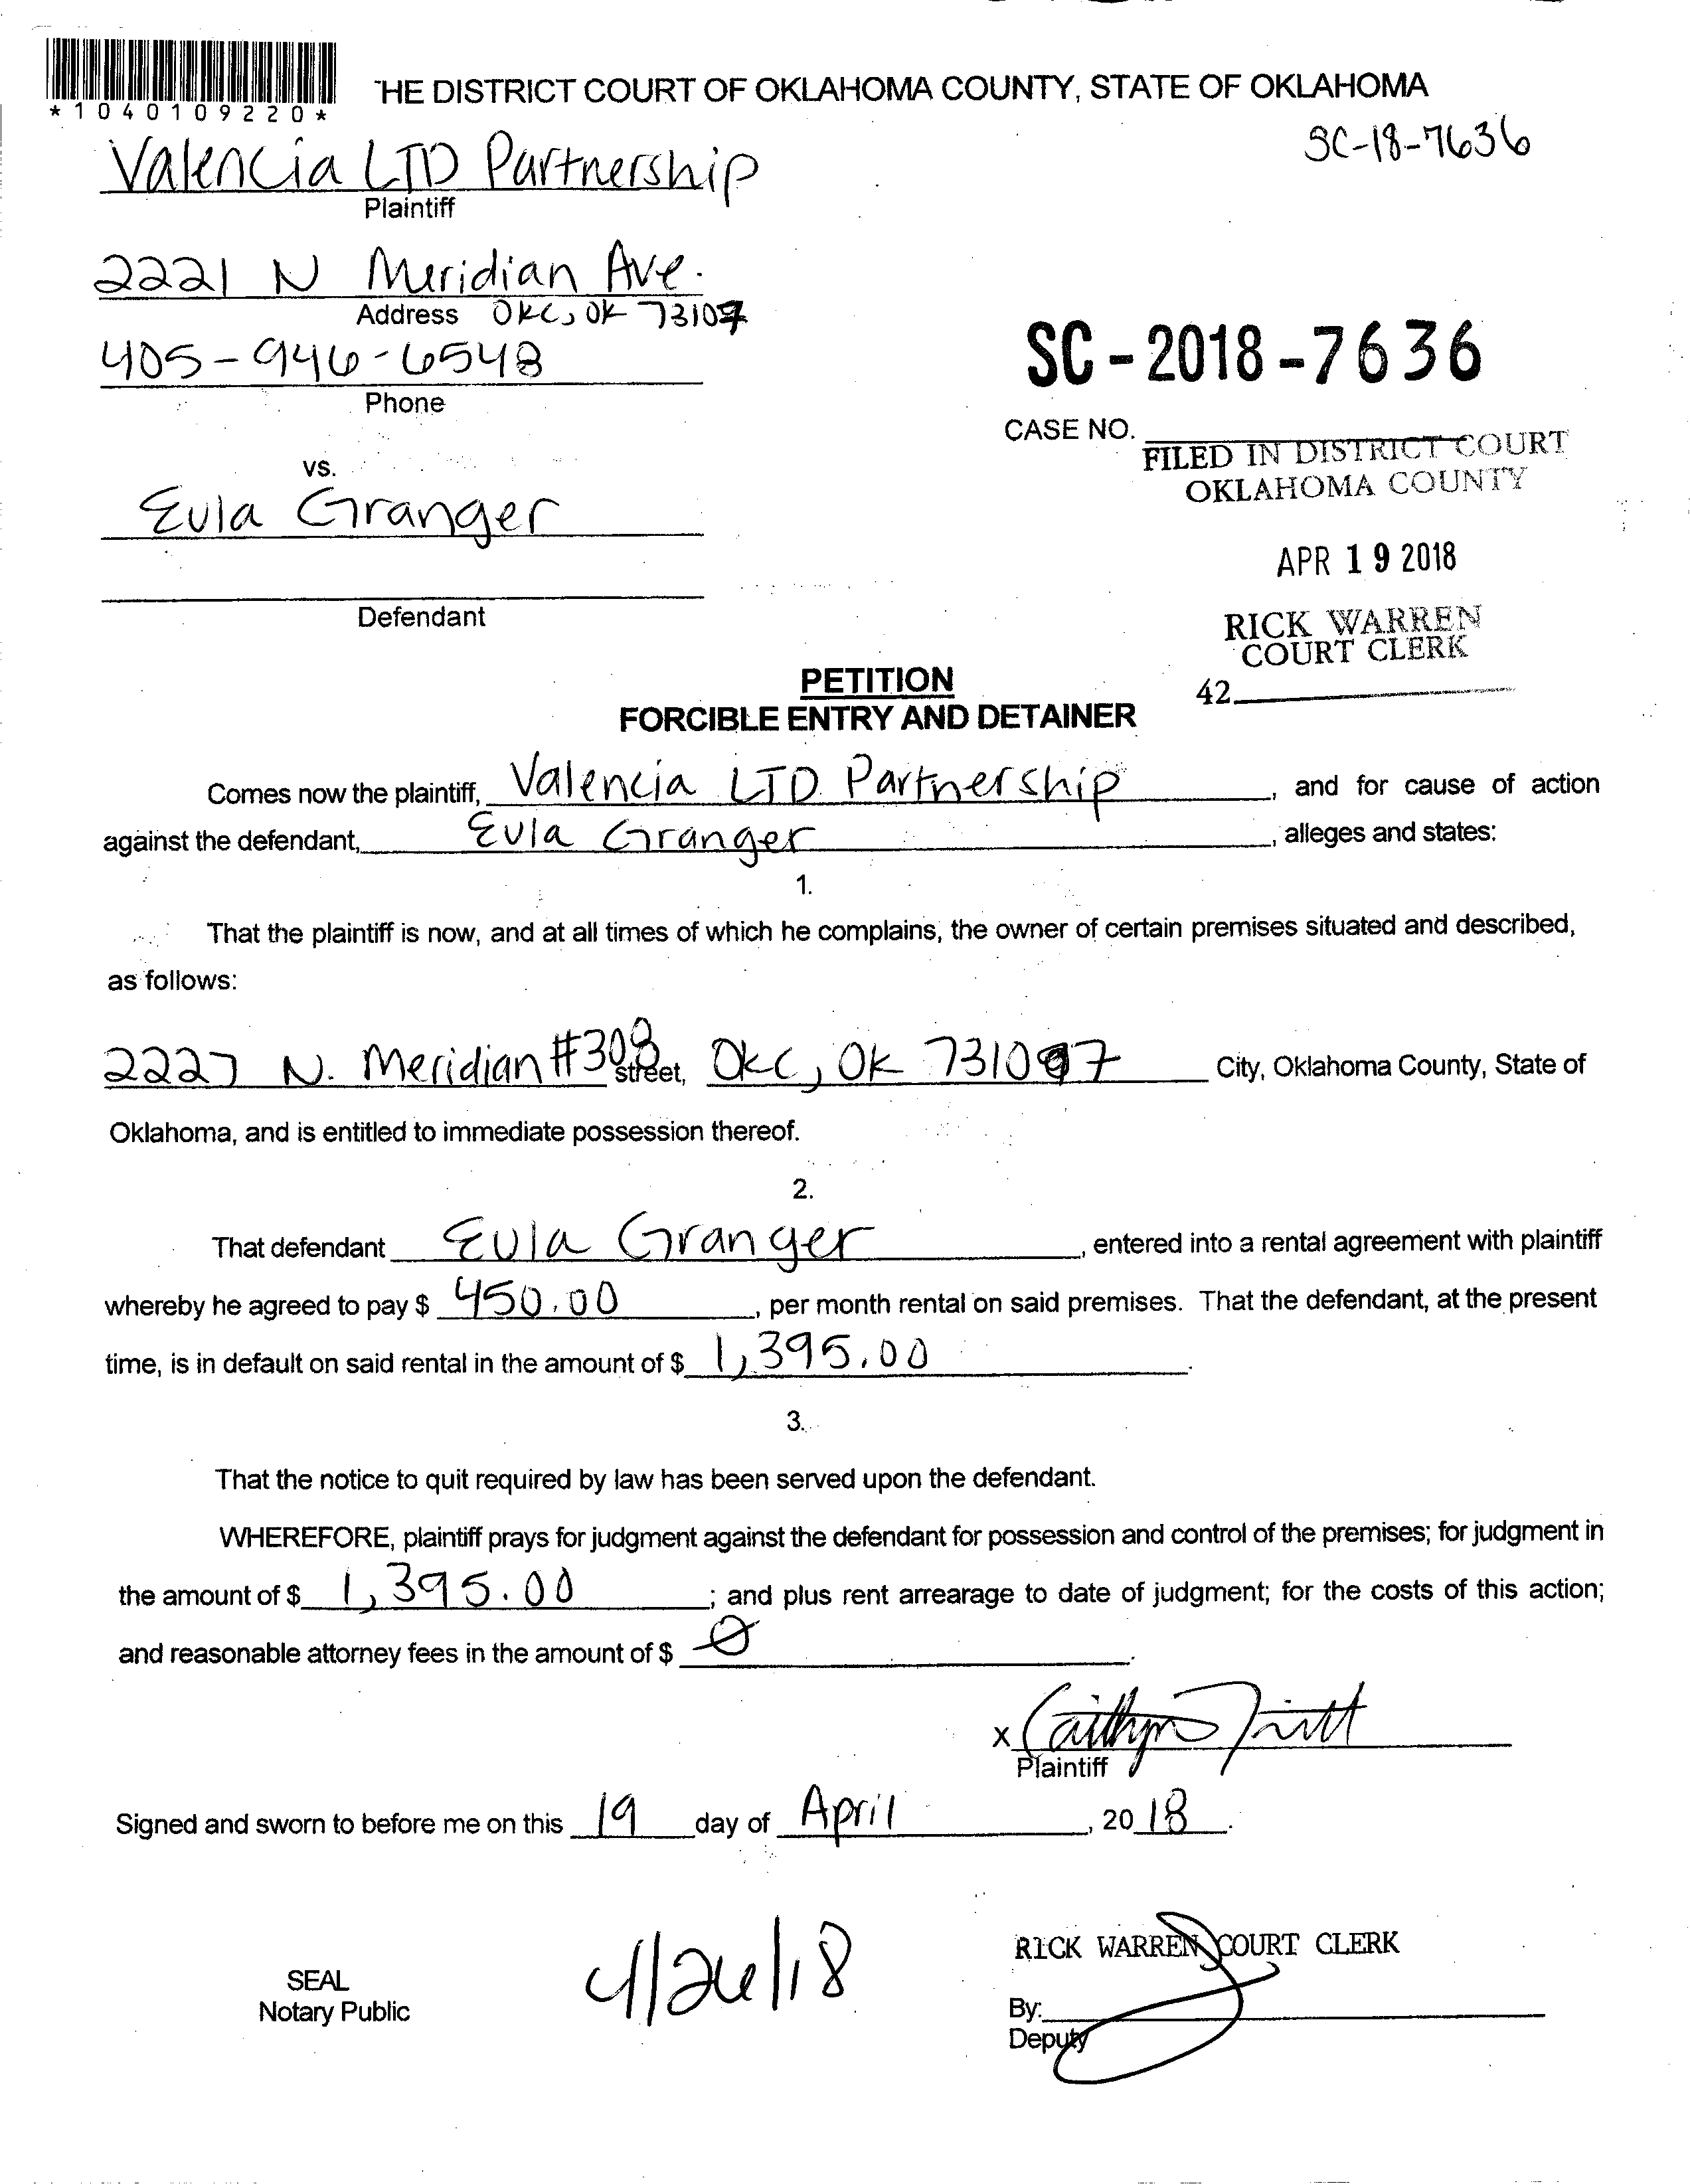 *1040109220*
THE DISTRICT COURT OF OKLAHOMA COUNTY, STATE OF OKLAHOMA
SC-18-7636
Valencia LTD Partnership
Plaintiff
2221 N Meridian Ave.
Address OKC, OK 73107
405-946-6548
Phone
SC-2018-7636
CASE NO.
FILED IN DISTRICT COURT
OKLAHOMA COUNTY
vs.
Eula Granger
APR 19 2018
Defendant
RICK WARREN
COURT CLERK
42
PETITION
FORCIBLE ENTRY AND DETAINER
Comes now the plaintiff, Valencia LTD Partnership, and for cause of action
against the defendant, Eula Granger, alleges and states:
1.
That the plaintiff is now, and at all times of which he complains, the owner of certain premises situated and described,
as follows:
2227 N. Meridian #308 street, OKC, OK 73107 City, Oklahoma County, State of
Oklahoma, and is entitled to immediate possession thereof.
2.
That defendant Eula Granger, entered into a rental agreement with plaintiff
whereby he agreed to pay $ 450.00, per month rental on said premises. That the defendant, at the present
time, is in default on said rental in the amount of $ 1,395.00.
3.
That the notice to quit required by law has been served upon the defendant.
WHEREFORE, plaintiff prays for judgment against the defendant for possession and control of the premises; for judgment in
the amount of $ 1,395.00; and plus rent arrearage to date of judgment; for the costs of this action;
and reasonable attorney fees in the amount of $ 0.
x
Plaintiff
Signed and sworn to before me on this 19 day of April, 2018.
4/26/18
RICK WARREN COURT CLERK
SEAL
Notary Public
By:
Deputy